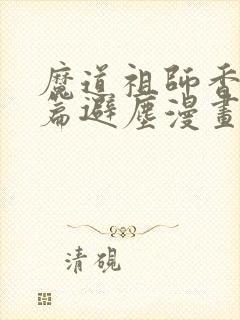 魔道祖師香
篇避塵漫畫
清硯